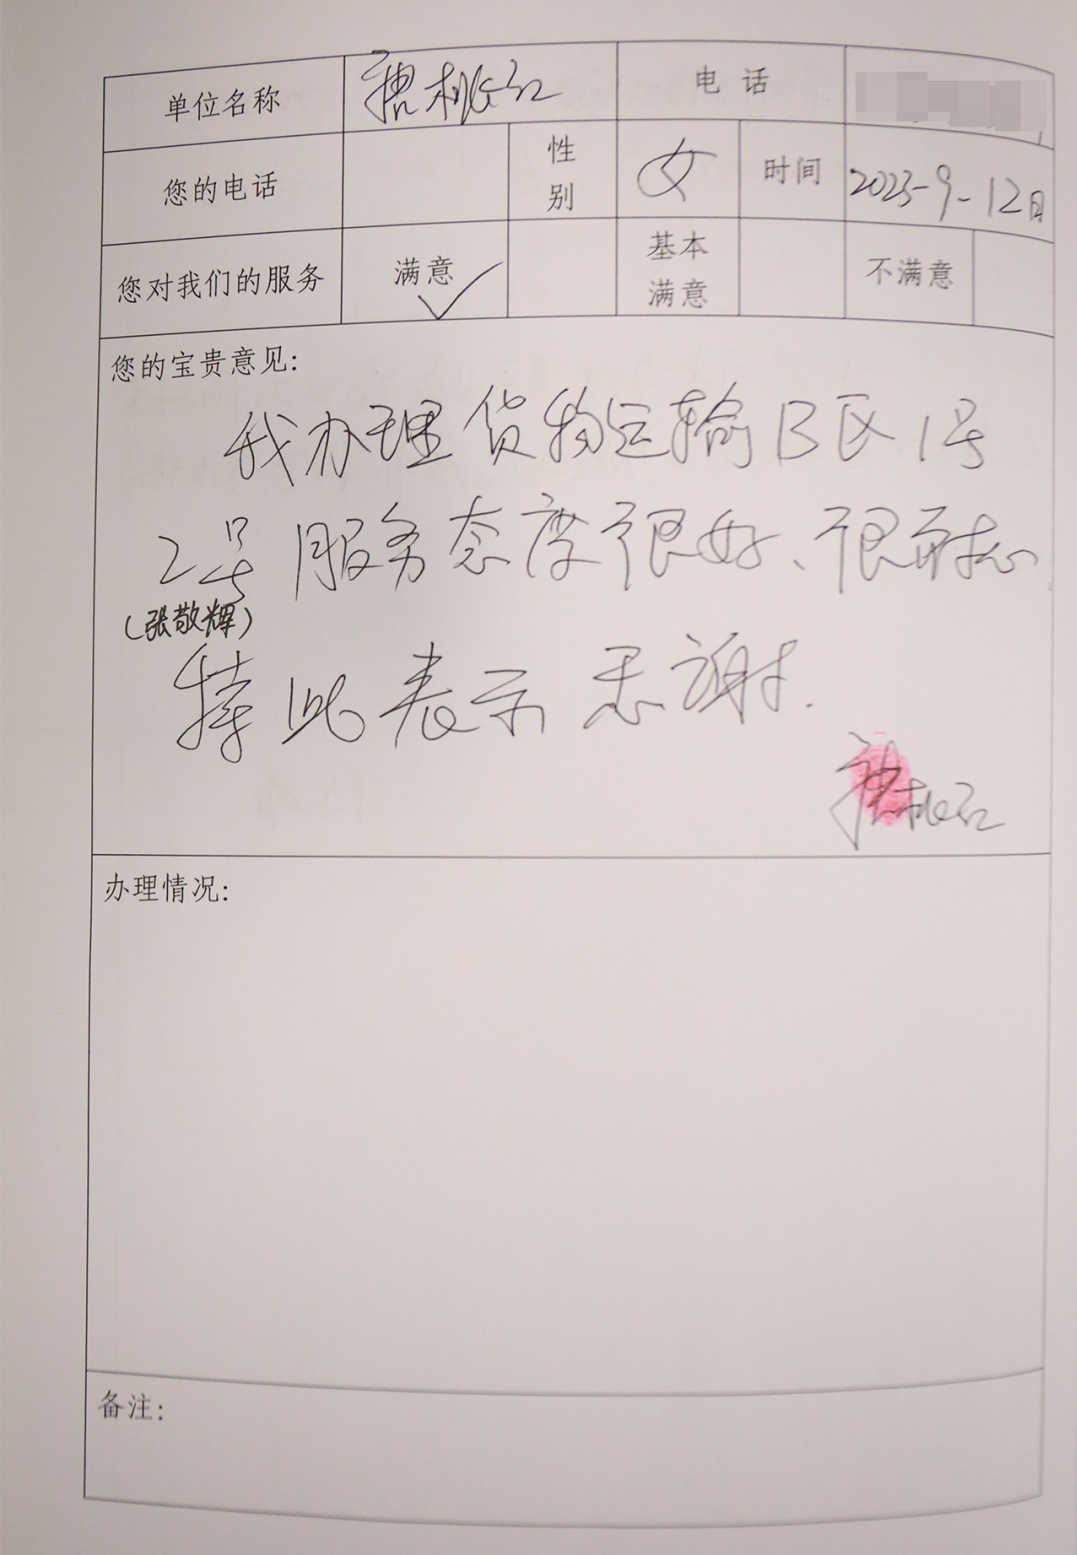 单位名称 桃红 电话
您的电话 性别 女 时间 2023-9-12日
您对我们的服务 满意 ✓ 基本满意 不满意
您的宝贵意见:
我办理货物运输B区1号
2号服务态度很好、很耐心
(张敬辉)
特此表示感谢.
桃红
办理情况:
备注: